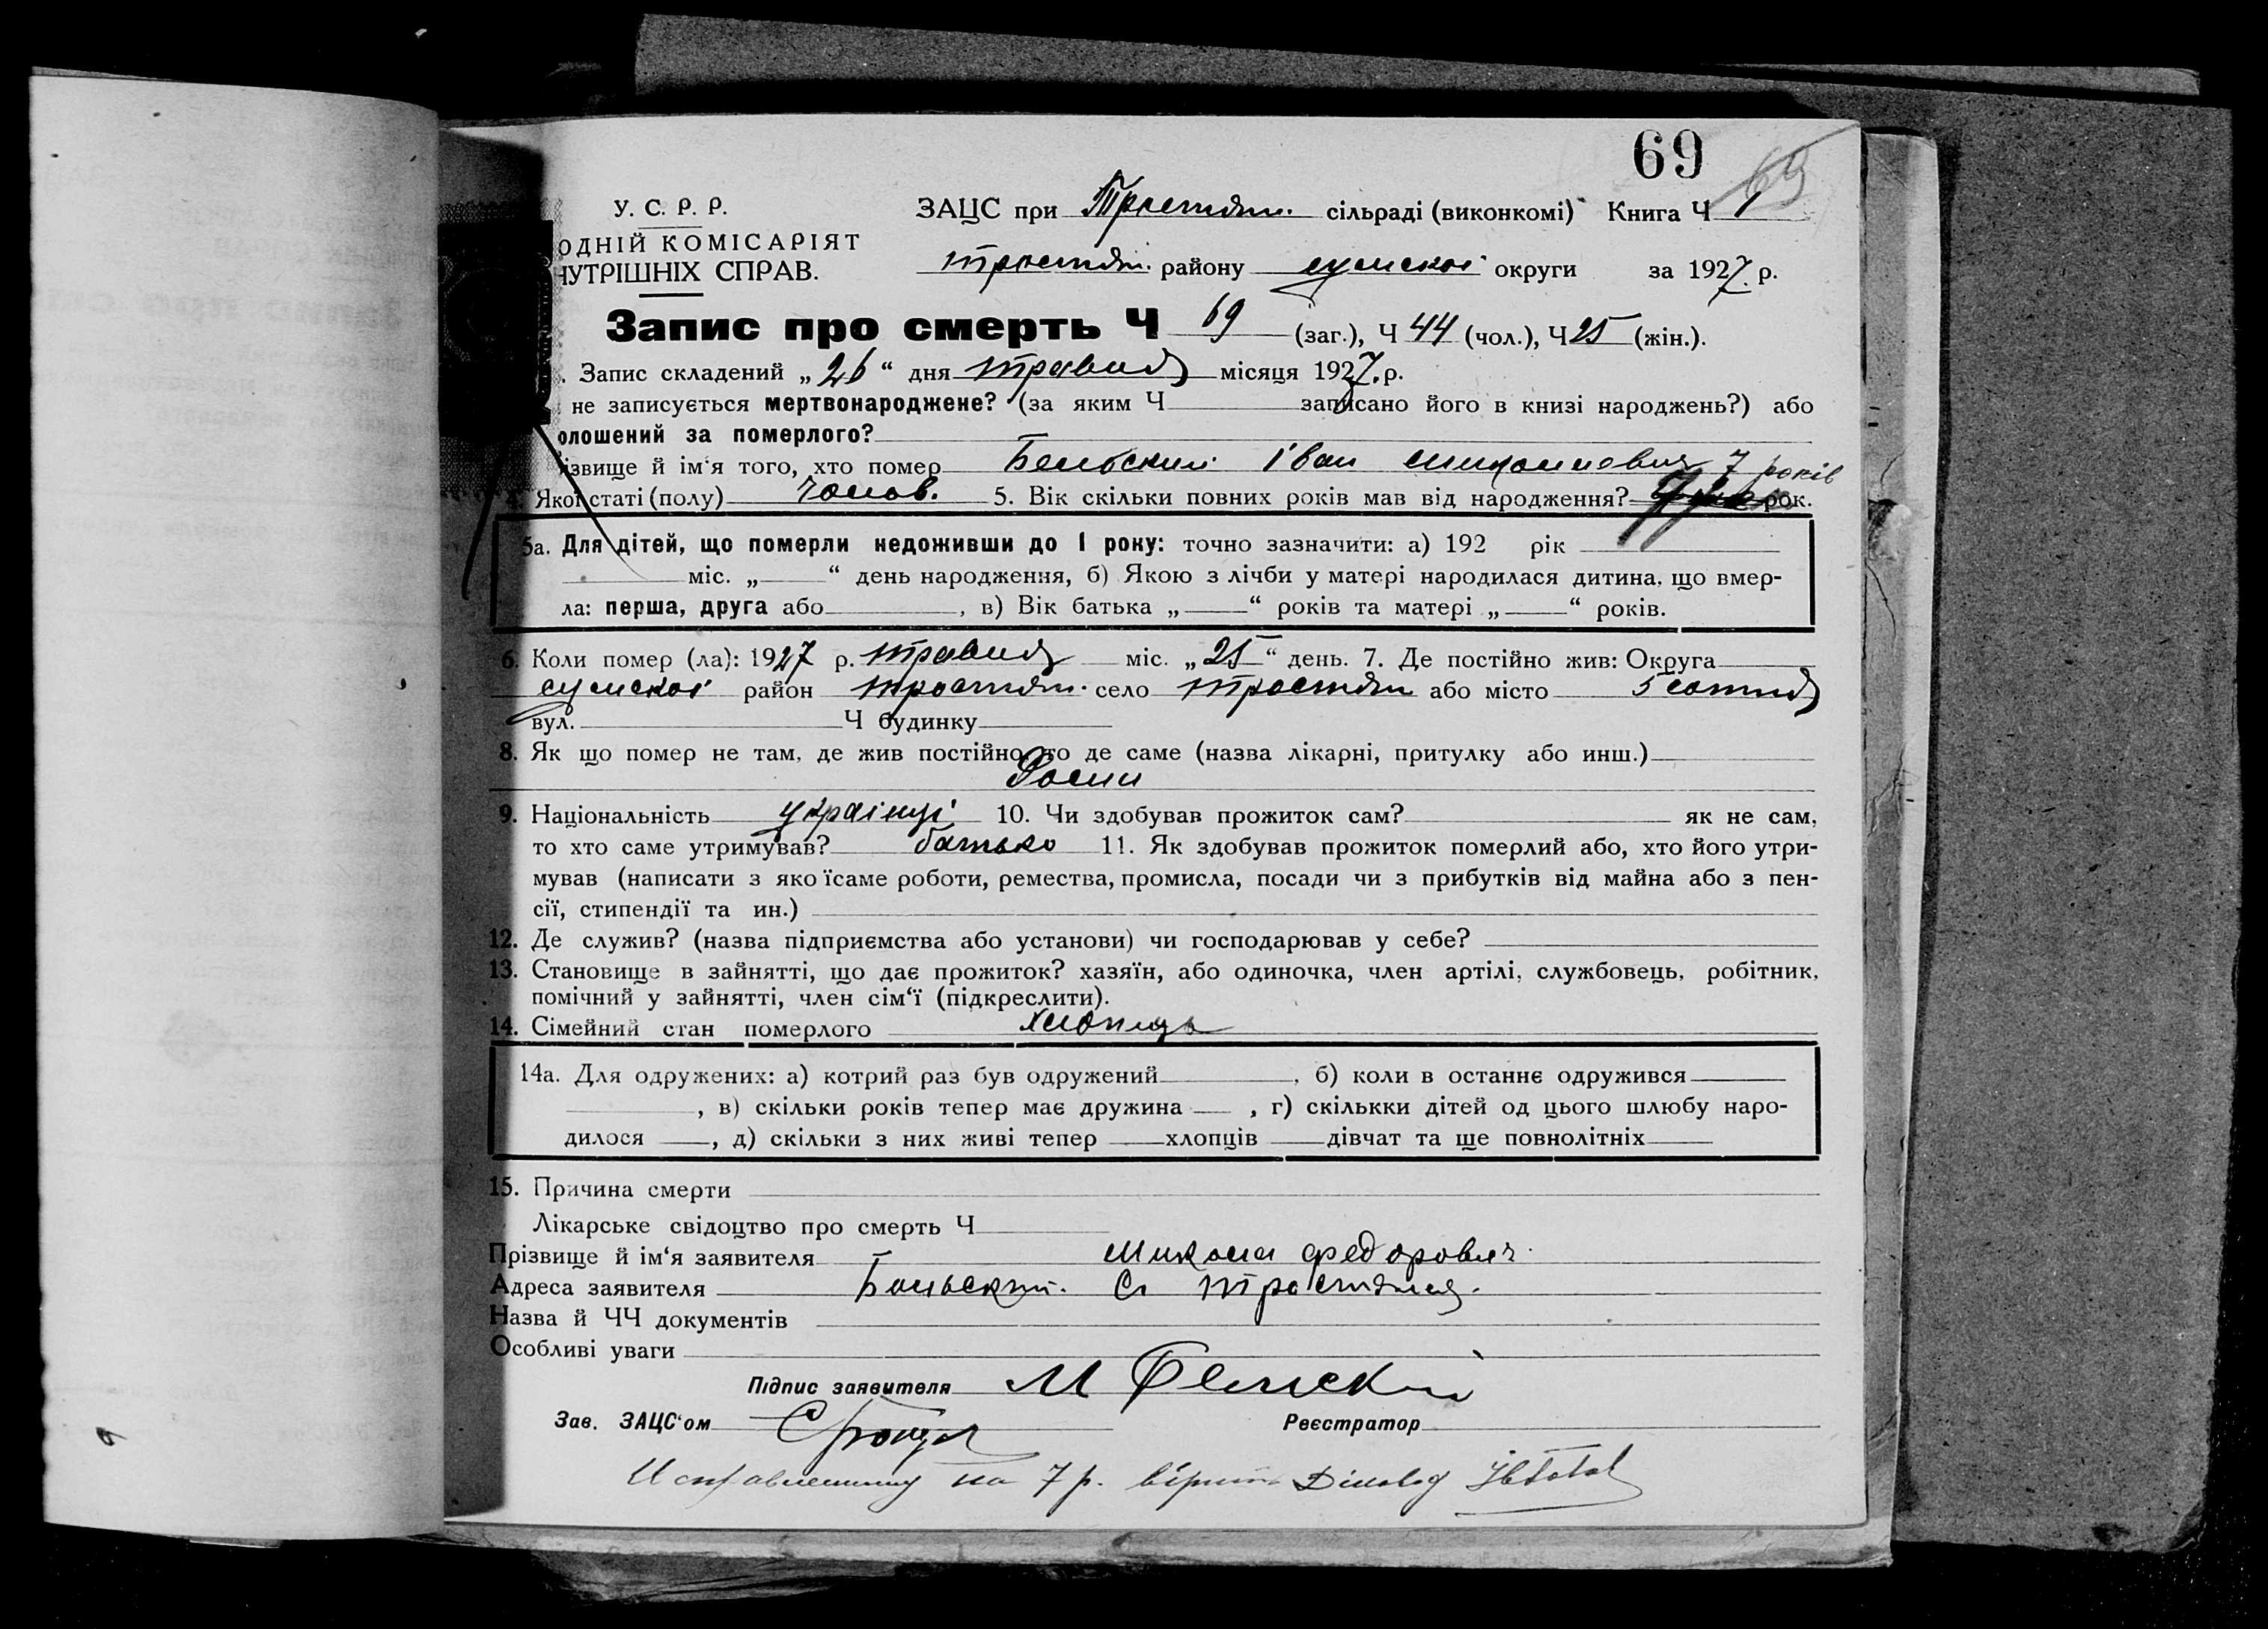 69 69
У. С. Р. Р.
ОДНІЙ КОМІСАРІЯТ
НУТРІШНІХ СПРАВ.
ЗАЦС при Тростян. сільраді (виконкомі) Книга Ч 1
тростян. району сумскоі округи за 1927. р.
Запис про смерть Ч 69 (заг.), Ч 44 (чол.), Ч 25 (жін.).
. Запис складений „26“ дня травня місяця 1927. р.
не записується мертвонароджене? (за яким Ч записано його в книзі народжень?) або
олошений за померлого?
ізвище й ім'я того, хто помер Бельский Іван 7 років
4. Якої статі (полу) чолов. 5. Вік скільки повних років мав від народження? рок.
5а. Для дітей, що померли недоживши до 1 року: точно зазначити: а) 192 рік
міс. „ “ день народження, б) Якою з лічби у матері народилася дитина, що вмер-
ла: перша, друга або , в) Вік батька „ “ років та матері „ “ років.
6. Коли помер (ла): 1927 р. травня міс. „25“ день. 7. Де постійно жив: Округа
сумскоі район тростян. село тростян або місто 5 сотня
вул. Ч будинку
8. Як що помер не там, де жив постійно, то де саме (назва лікарні, притулку або инш.)
9. Національність україці 10. Чи здобував прожиток сам? як не сам,
то хто саме утримував? батько 11. Як здобував прожиток померлий або, хто його утри-
мував (написати з якоїсаме роботи, ремества, промисла, посади чи з прибутків від майна або з пен-
сії, стипендії та ин.)
12. Де служив? (назва підприємства або установи) чи господарював у себе?
13. Становище в зайнятті, що дає прожиток? хазяїн, або одиночка, член артілі, службовець, робітник,
помічний у зайнятті, член сім'ї (підкреслити).
14. Сімейний стан померлого хлопець
14а. Для одружених: а) котрий раз був одружений , б) коли в останнє одружився
, в) скільки років тепер має дружина , г) скількки дітей од цього шлюбу наро-
дилося , д) скільки з них живі тепер хлопців дівчат та ще повнолітніх
15. Причина смерти
Лікарське свідоцтво про смерть Ч
Прізвище й ім'я заявителя Микола федорович
Адреса заявителя Бельский. С. тростянец.
Назва й ЧЧ документів
Особливі уваги
Підпис заявителя М Бельский
Зав. ЗАЦС'ом Реєстратор
Исправленному на 7 р. вірить Діловод